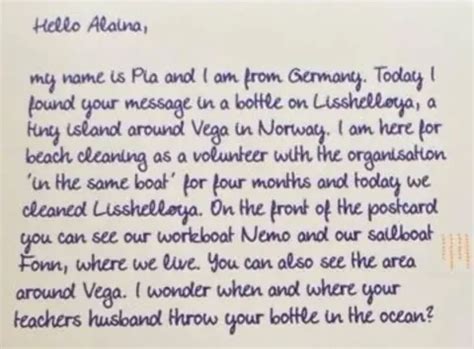 Hello Alaina,
my name is Pia and I am from Germany. Today I
found your message in a bottle on Lisshelløya, a
tiny island around Vega in Norway. I am here for
beach cleaning as a volunteer with the organisation
'in the same boat' for four months and today we
cleaned Lisshelløya. On the front of the postcard
you can see our workboat Nemo and our sailboat
Fonn, where we live. You can also see the area
around Vega. I wonder when and where your
teachers husband throw your bottle in the ocean?